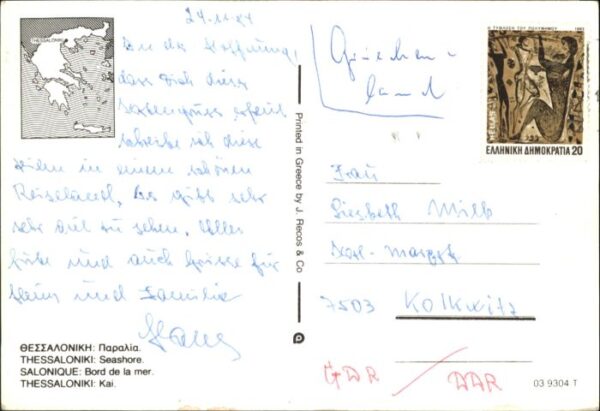 THESSALONIKI
24.11.84
In der Hoffnung,
dass Dich dieser
Kartengruss erfreut
schreibe ich diese
in einem schönen
Reiseland. Es gibt sehr
sehr viel zu sehen. Alles
Liebe und auch Grüsse für
Hans und Familie
Hans
ΘΕΣΣΑΛΟΝΙΚΗ: Παραλία.
THESSALONIKI: Seashore.
SALONIQUE: Bord de la mer.
THESSALONIKI: Kai.
Printed in Greece by J. Recos & Co
Griechen-
land
Η ΤΥΦΛΩΣΗ ΤΟΥ ΠΟΛΥΦΗΜΟΥ 1983
HELLAS
ΕΛΛΗΝΙΚΗ ΔΗΜΟΚΡΑΤΙΑ 20
Frau
Milk
7503 Kolkwitz
GDR / DDR
03 9304 T